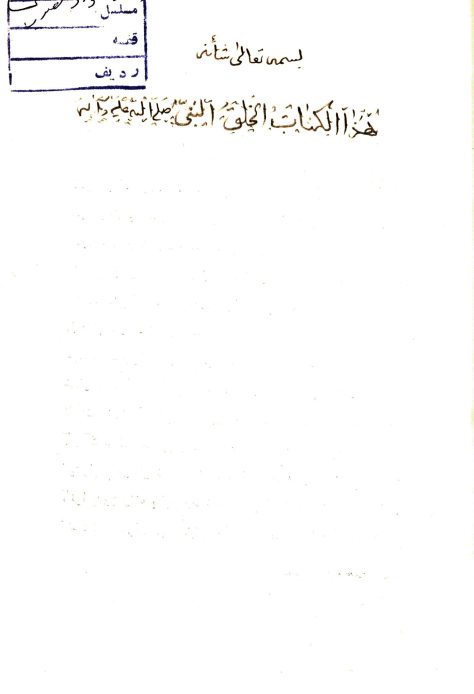 مسلسل
قفسه
ردیف
بسمه تعالی شأنه
هٰذَا الکتابُ الخُلقِ النبیِّ صلی الله علیه وآله